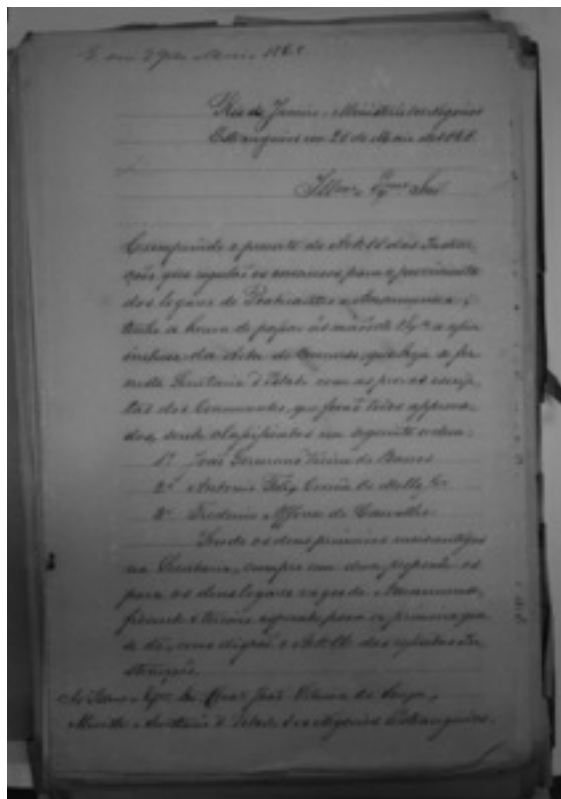 E em 29 de Maio 1868
Rio de Janeiro. Ministerio dos Negocios
Estrangeiros em 26 de Maio de 1868.
Illmo. e Exmo. Snr.
Cumprindo o preceito do Art. 11 das Instruc-
ções que regulão os concursos para o provimento
dos logares de Praticantes e Amanuenses,
tenho a honra de passar ás mãos de V. Exa. a
inclusa da Acta do Concurso, que hoje se fez
nesta Secretaria d'Estado com as provas escrip-
tas dos Concurrentes, que forão todos approva-
dos, sendo classificados em seguinte ordem:
1º João
2º Antonio Felix Corrêa de Mello
3º Frederico Affonso de Carvalho
Sendo os dous primeiros mais antigos
na Secretaria, cumpre
para os dous logares vagos de Amanuense,
ficando o terceiro para a primeira que
se dê, como dispõe o Art. das
strucções.
Ao Illmo. e Exmo. Snr. Consro. João de Souza,
Ministro e Secretario d'Estado dos Negocios Estrangeiros.